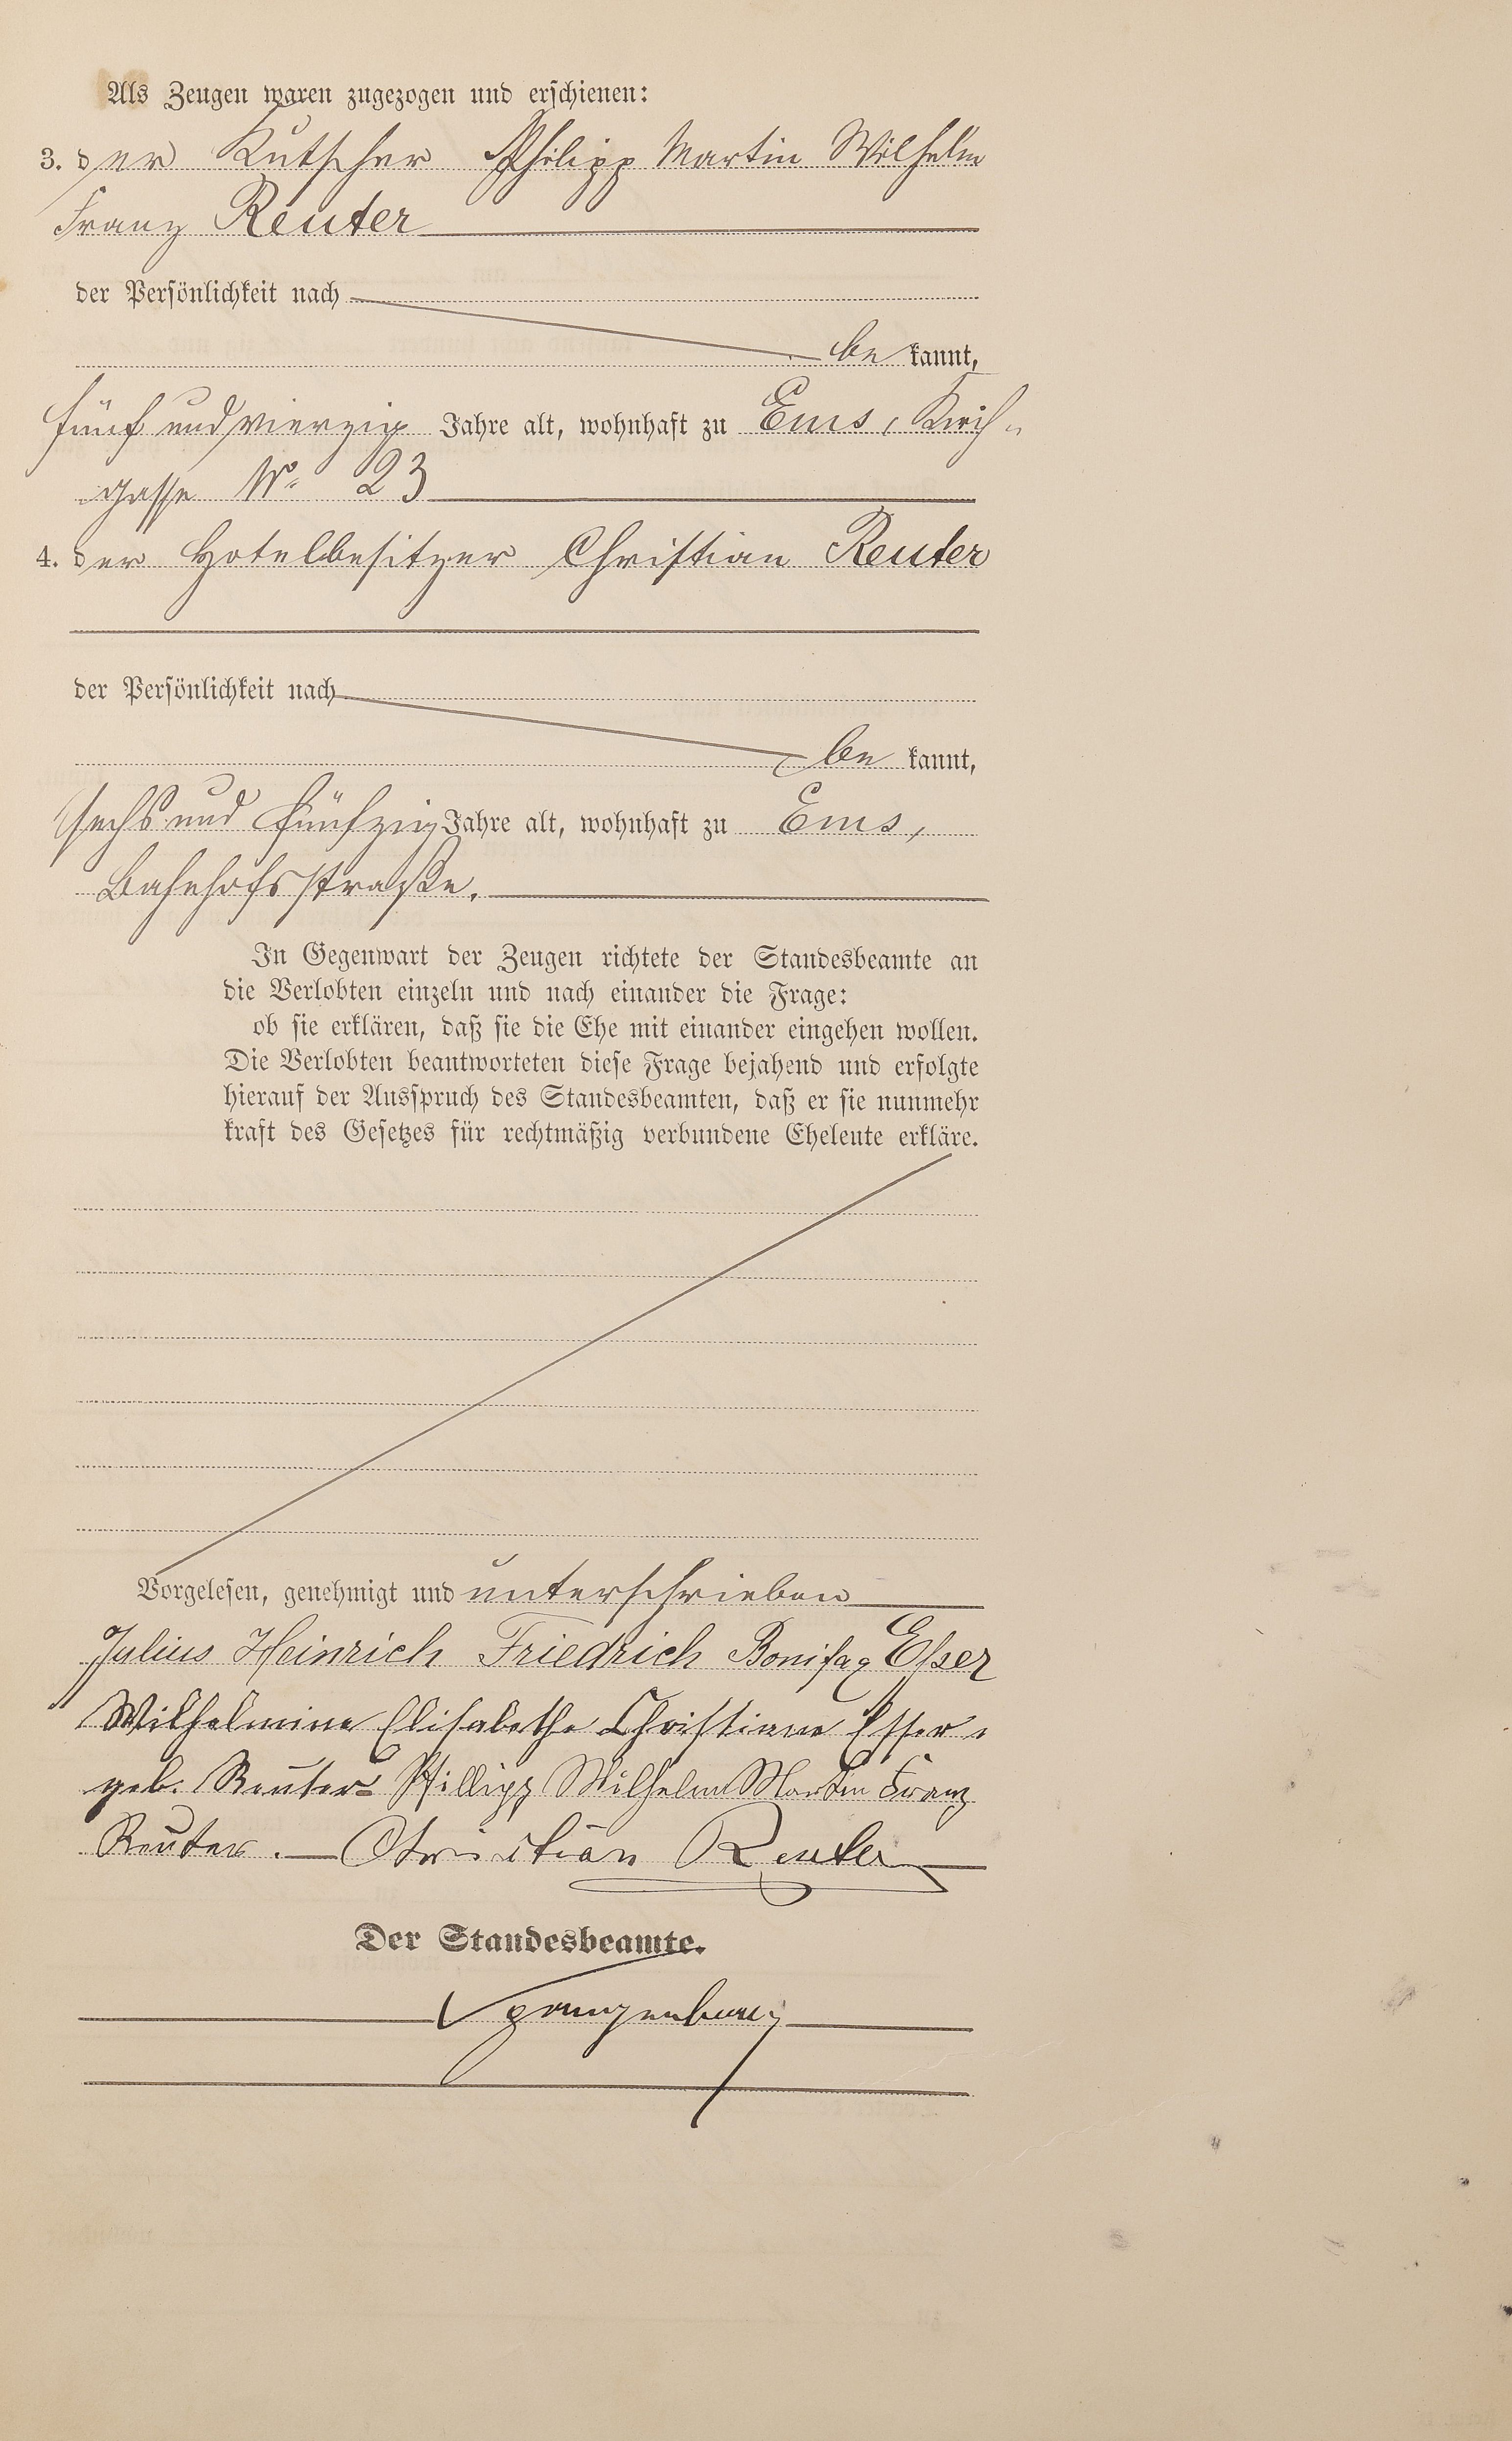 Als Zeugen waren zugezogen und erschienen:
3. der Kutscher Philipp Martin Wilhelm
Franz Reuter
der Persönlichkeit nach
be kannt,
fünf und vierzig Jahre alt, wohnhaft zu Ems, Kirch-
gasse No. 23
4. der Hotelbesitzer Christian Reuter
der Persönlichkeit nach
be kannt,
sechs und fünfzig Jahre alt, wohnhaft zu Ems,
Bahnhofsstraße.
In Gegenwart der Zeugen richtete der Standesbeamte an
die Verlobten einzeln und nach einander die Frage:
ob sie erklären, daß sie die Ehe mit einander eingehen wollen.
Die Verlobten beantworteten diese Frage bejahend und erfolgte
hierauf der Ausspruch des Standesbeamten, daß er sie nunmehr
kraft des Gesetzes für rechtmäßig verbundene Eheleute erkläre.
Vorgelesen, genehmigt und unterschrieben
Julius Heinrich Friedrich Bonifaz Esser
Wilhelmine Elisabethe Christiane Esser
geb. Reuter Phillipp Wilhelm Martin Franz
Reuter. Christian Reuter
Der Standesbeamte.
Spangenberg